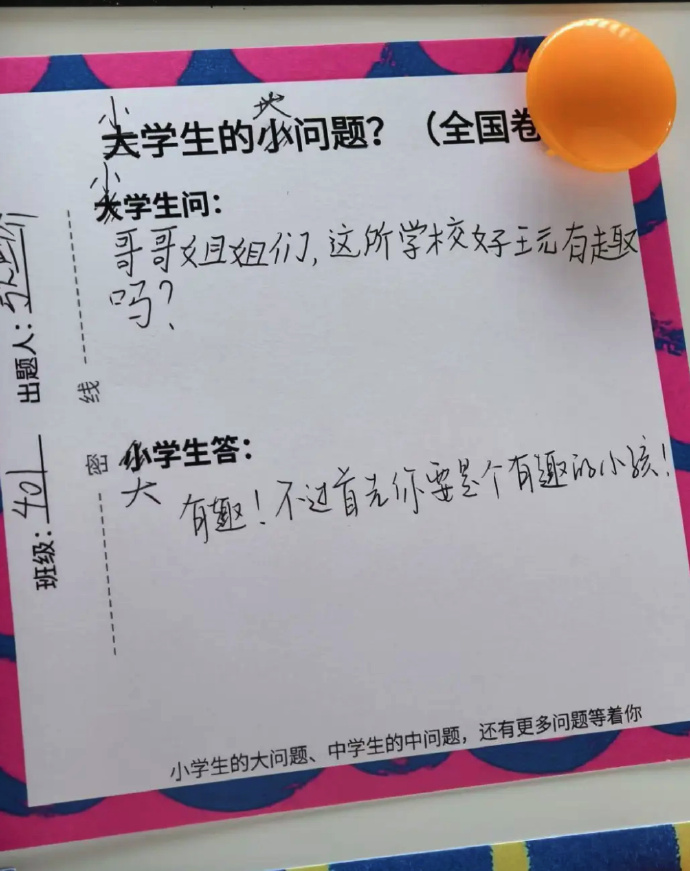 小 地
大学生的小问题？（全国卷
小
大学生问：
哥哥姐姐们，这所学校好玩有趣
吗？
小学生答：
大
有趣！不过首先你要是个有趣的小孩！
小学生的大问题、中学生的中问题，还有更多问题等着你
班级：401
出题人：
密
线